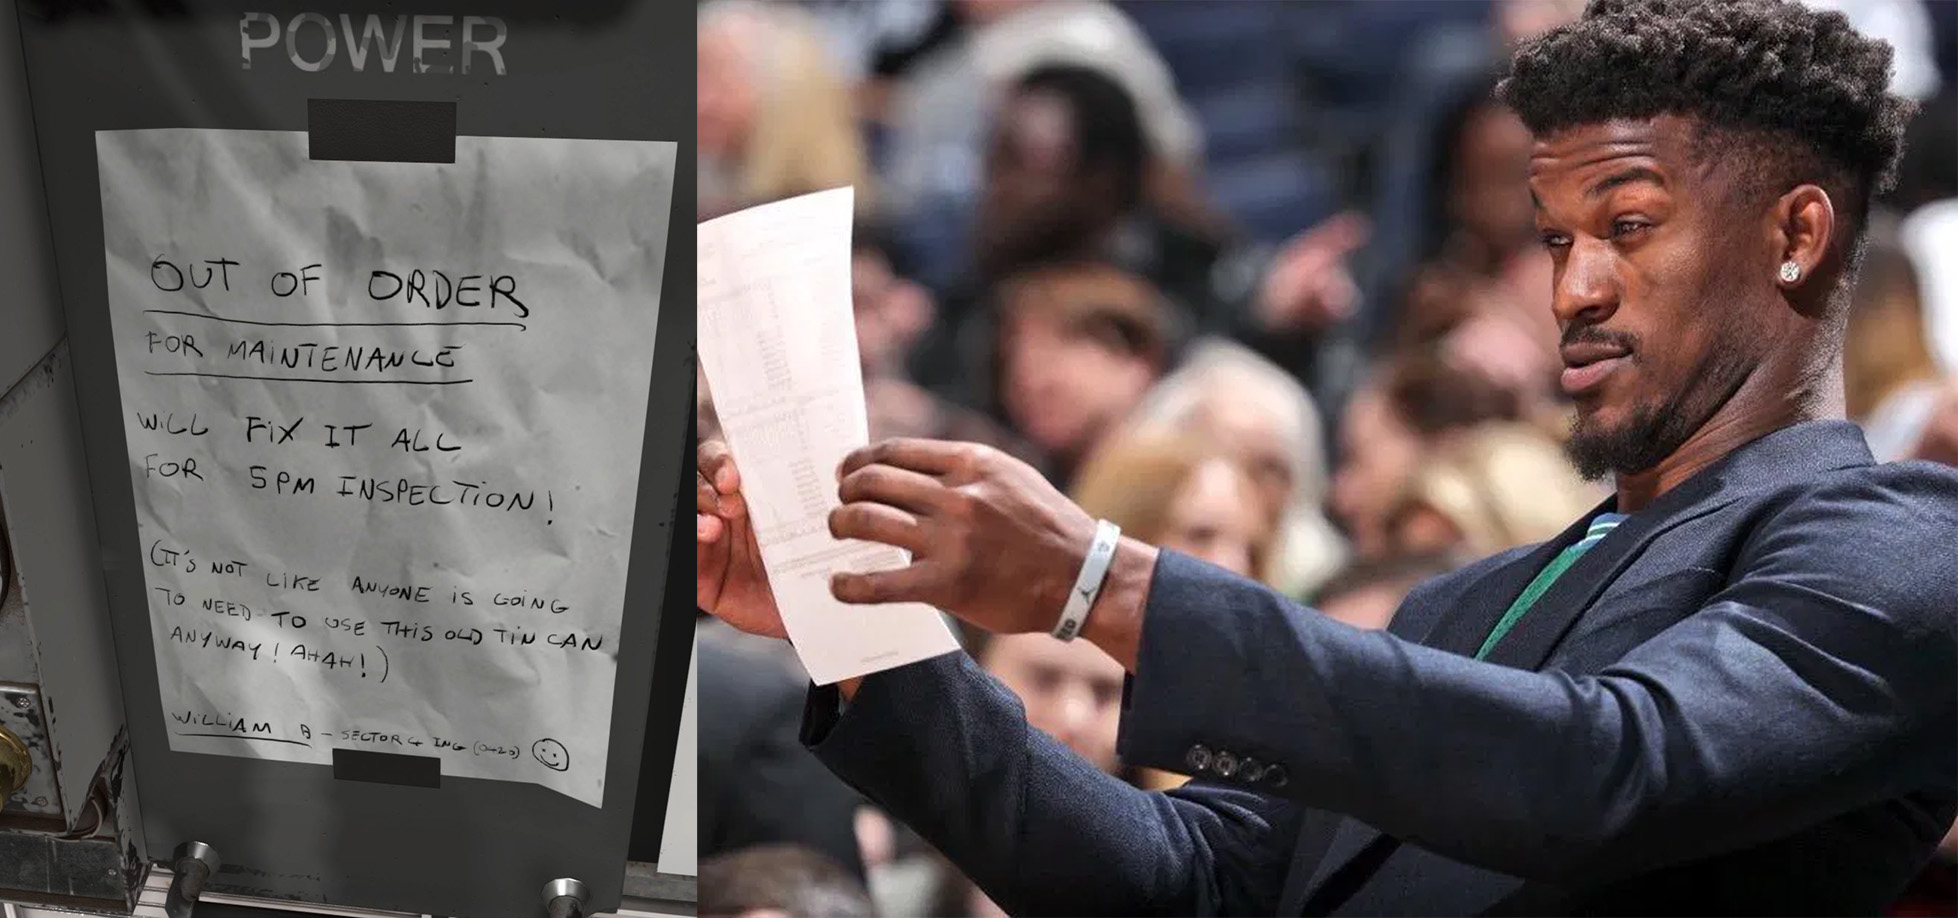 POWER
OUT OF ORDER
FOR MAINTENANCE
WILL FIX IT ALL
FOR 5PM INSPECTION!
(IT'S NOT LIKE ANYONE IS GOING
TO NEED TO USE THIS OLD TIN CAN
ANYWAY! AHAH!)
WILLIAM B - SECTOR 4 ING